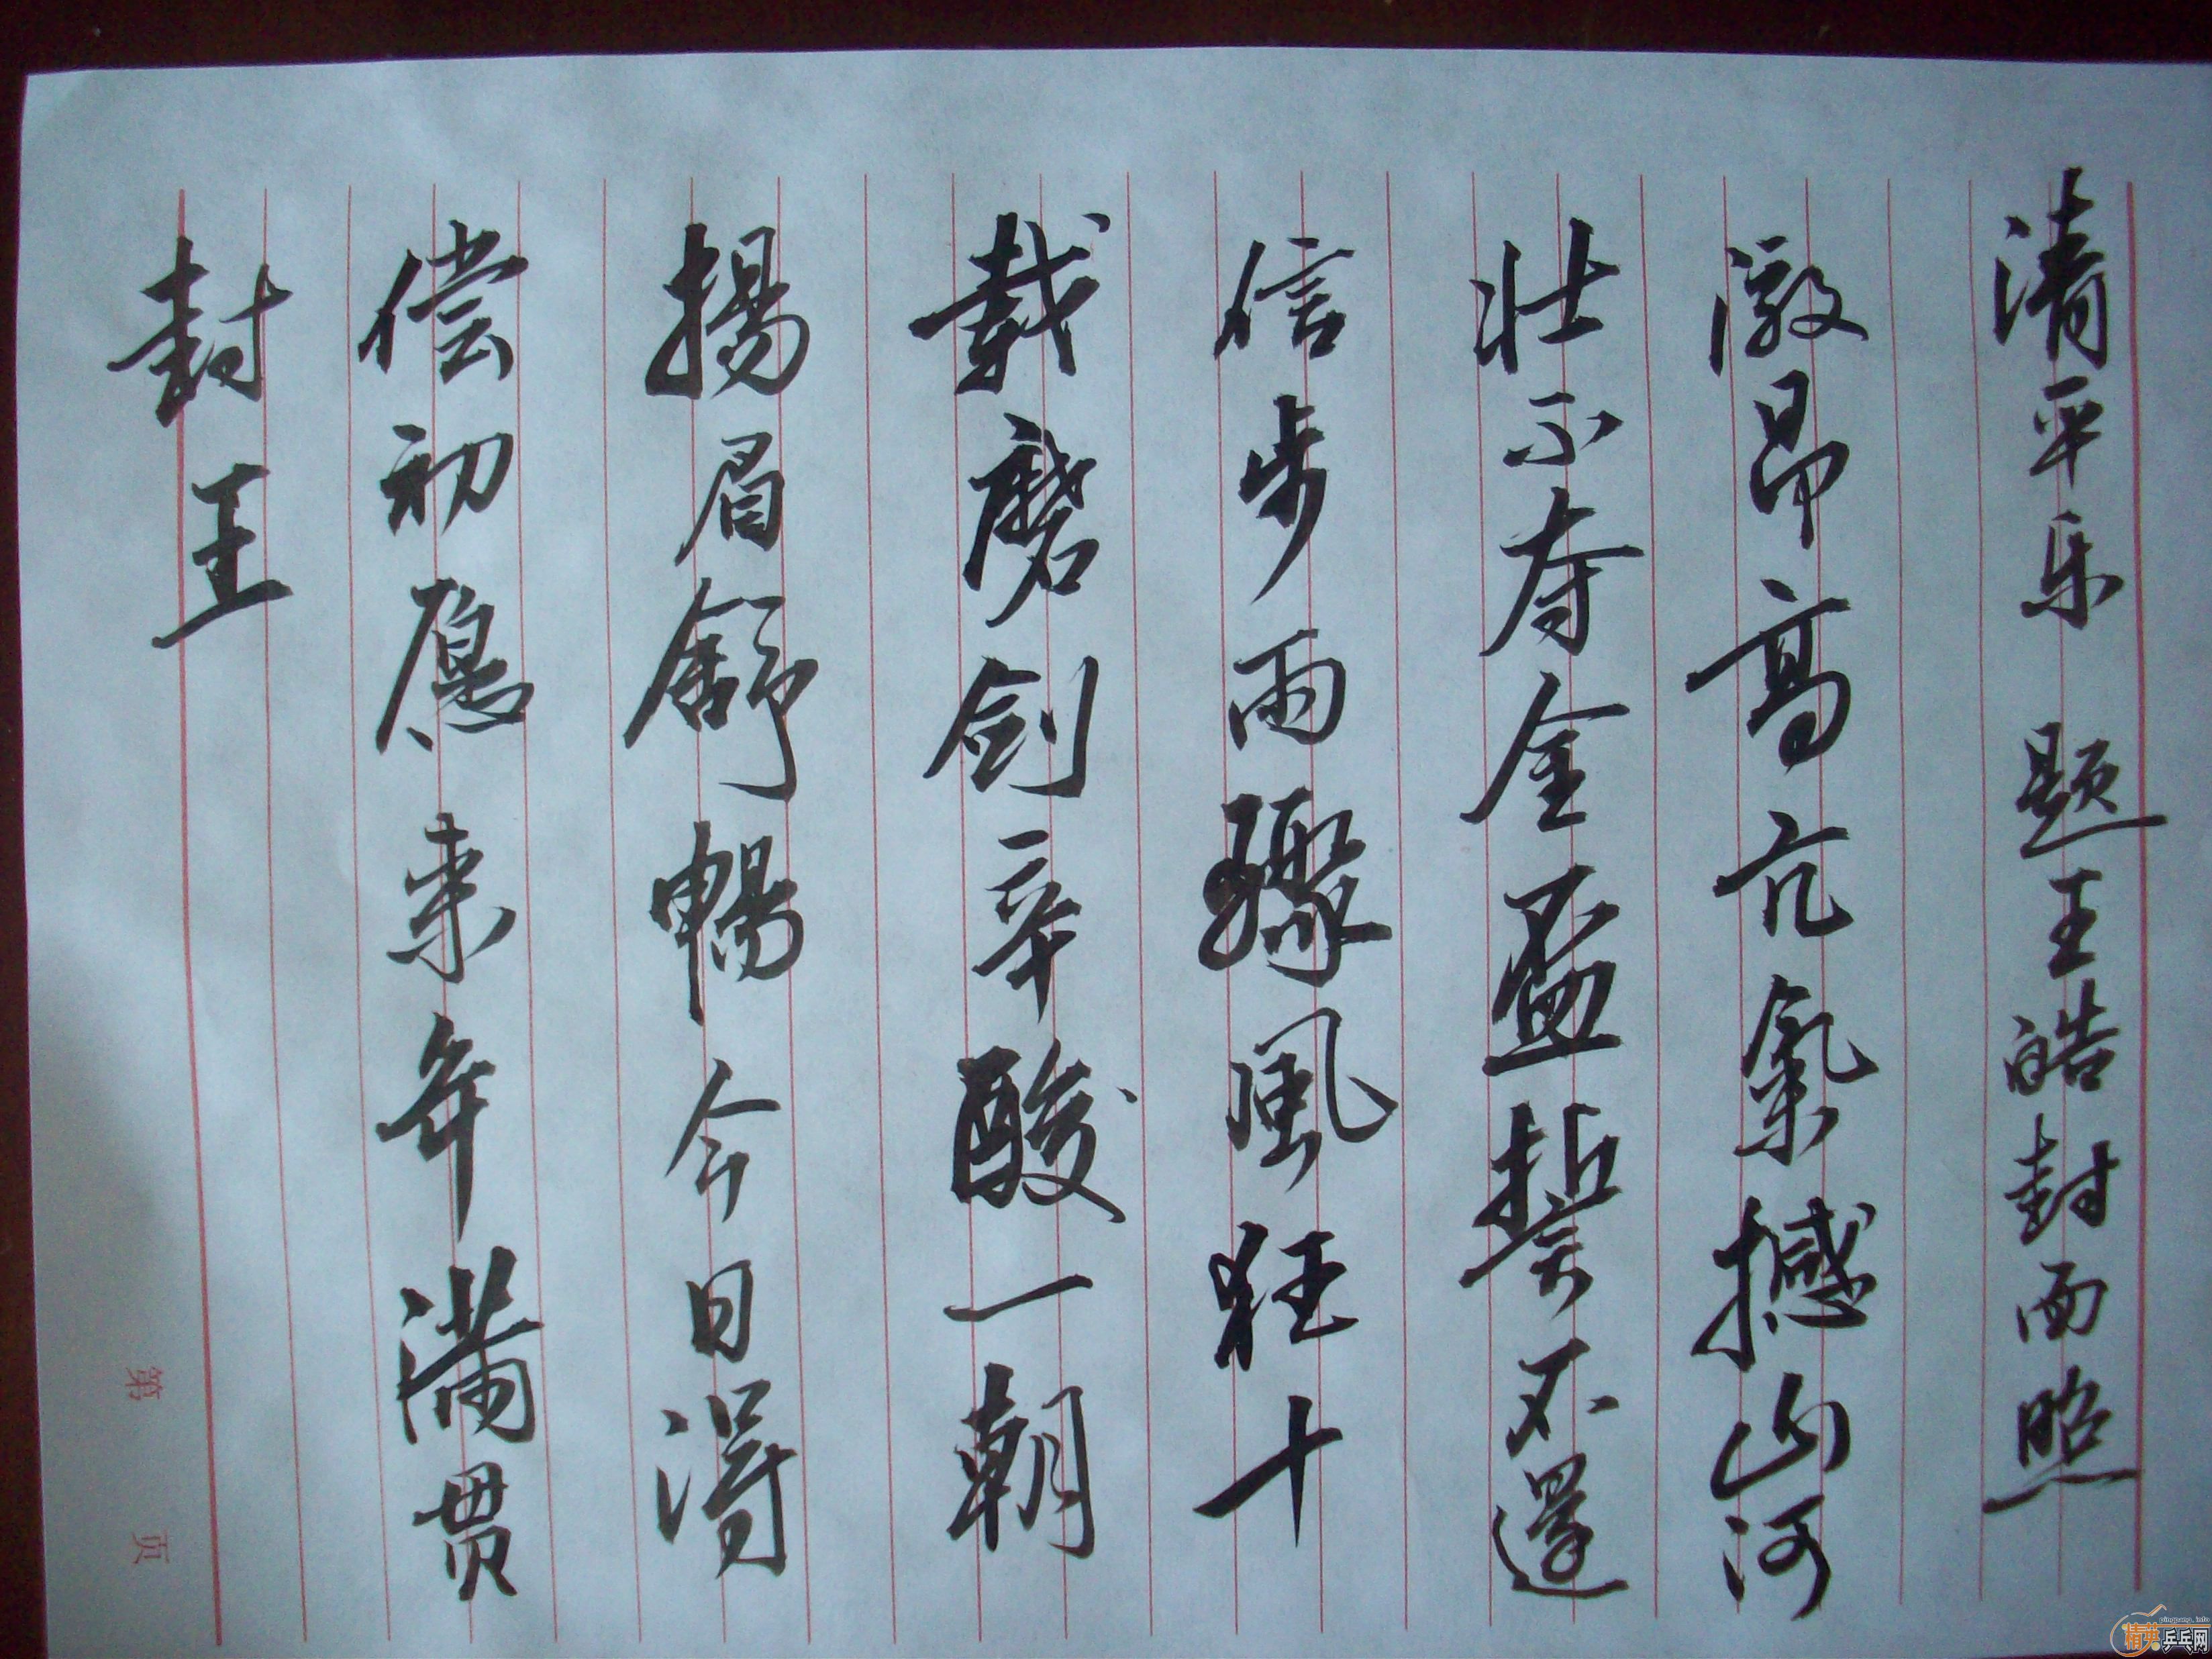 清平乐 题王皓封面照
激昂高亢氣撼山河
壮不夺金盃誓不還
信步雨驟風狂十
载磨劍辛酸一朝
揚眉舒暢今日得
偿初愿来年满贯
封王
第 页
精英乒乓网
pingpang.info